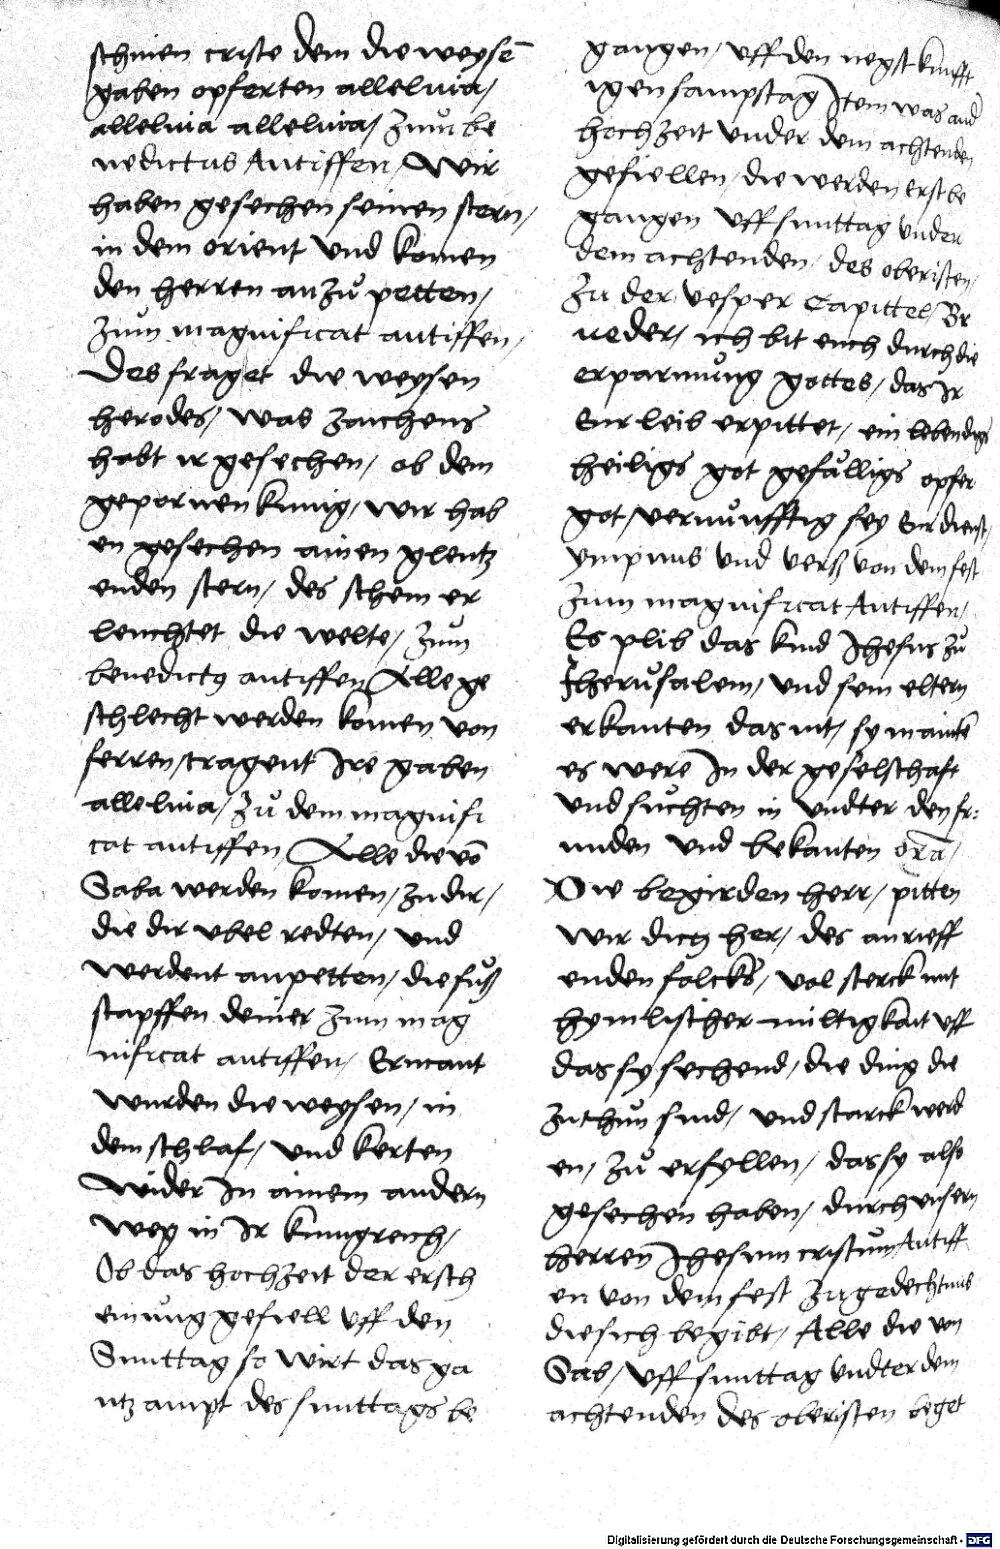 schinen criste dem die weysē
gaben opferten alleluia/
alleluia alleluia/ Zum be
nedictus Antiffen/ Wir
haben gesechen seinen stern/
in dem orient vnd komen
den herren anzů petten/
Zům magnificat antiffen/
Des fraget die weysen
herodes/ was zaichens
habt ir gesechen/ ob dem
gepornen kunig/ wir hab
en gesechen ainen glentz
enden stern/ des schein er
leuchtet die welte/ Zům
benedictꝯ antiffen Alle ge
schlecht werden komen von
ferren/ tragent Ire gaben
alleluia/ Zů dem magnifi
cat antiffen Alle die vō
Saba werden komen/ zu dir/
die dir vbel redten/ vnd
werdent anpetten/ die fůß
stapffen deiner Zum mag
nificat antiffen/ Ermant
wurden die weysen/ in
dem schlaf/ vnd kerten
wider In ainem andern
weg in Ir kunigreich/
Ob das hochzeit der ersch
einůng gefiell vff den
Sunttag so wirt das ga
ntz ampt des sunttags be
gangen/ vff den negst kunfft
igen sampstag Item was and
hochzeit vnder dem achtenden
gefiellen/ die werden erst be
gangen vff sunttag vnder
dem achtenden/ des obristen/
Zu der vesper Capittel/ Br
ueder/ ich bit euch durch die
erparmůng gottes/ das Ir
Eur leib erpittet/ ein lebendigs
heiligs got gefålligs opfer
got/ vernůnfftig sey Eur dienst/
ympnus vnd verß von dem fest
Zum magnificat Antiffen/
Es plib das kind Ihesus zů
Iherůsalem/ vnd sein eltern
erkanten das nit/ sy mainten
es were In der geselschaft
vnd sůchten in vndter den fr:
unden vnd bekanten orā/
Die begirden herr/ pitten
wir dich her/ des anrieff
enden folcks/ vol sterck mit
hymlischer miltigkait vff
das sy sechend/ die ding die
zuthůn sind/ vnd starck werd
en/ zů erfyllen/ das sy also
gesechen haben/ durch vnsern
herren Ihesum cristům Antiff
en von dem fest Zu gedechtnus
die sich begibt/ Alle die von
Sab/ vff sunttag vndter dem
achtenden des obristen beget
Digitalisierung gefördert durch die Deutsche Forschungsgemeinschaft - DFG